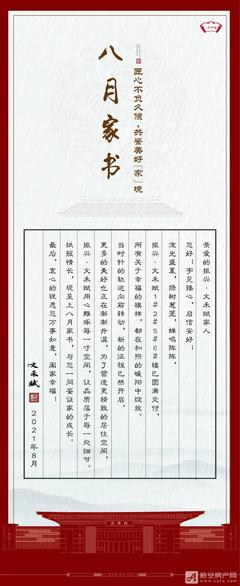 八月家书
匠心不负久候，共鉴美好「家」境
亲爱的振兴·文禾赋家人
您好！字见臻心，启信安好！
流光盛夏，绿树葱茏，蝉鸣阵阵，
振兴·文禾赋1#2#5#6#楼已圆满交付，
所有关于幸福的模样，都在和煦的暖阳中绽放。
当时针的轨迹向前转动，新的征程已然开启，
更多的美好也正在渐渐升温，为了营造更精致的居住空间，
振兴·文禾赋用心雕琢每一寸空间，让品质落于每一处细节。
纸短情长，现呈上八月家书，与您一同鉴证家的成长。
最后，衷心的祝愿您万事如意，阖家幸福！
文禾赋
2021年8月
新安房产网